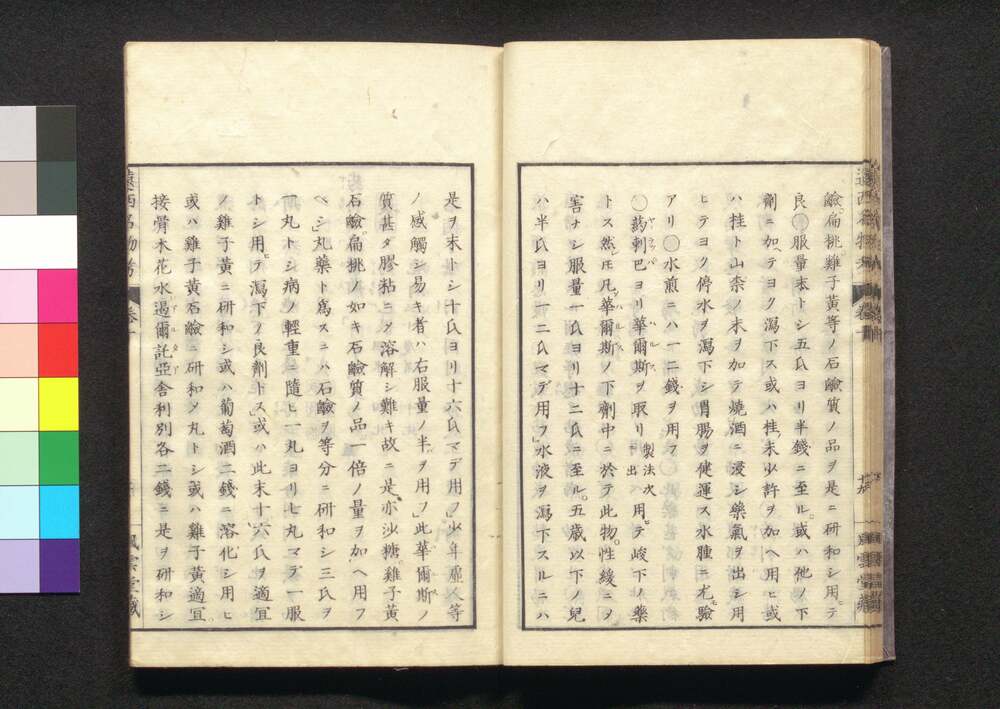 鹼扁挑雞子黄等ノ石鹼質ノ品ヲ是ニ研和シ用テ
良○服量末トシ五氏ヨリ半錢ニ至ル或ハ他ノ下
劑ニ加ヘテヨク瀉下ス或ハ桂末少許ヲ加ヘ用ヒ或
ハ桂ト山柰ノ末ヲ加テ燒酒ニ浸シ藥氣ヲ出シ用
ヒテヨク停水ヲ瀉下シ胃腸ヲ健運ス水腫ニ尤驗
アリ○水煎ニハ一二錢ヲ用フ
○藥剌巴ヨリ華爾斯ヲ取リ製法次ニ出用テ峻下ノ藥
トス然𪜈凡華爾斯ノ下劑中ニ於テ此物性緩ニヲ
害ナシ服量一氏ヨリ十二氏ニ至ル五歳以下ノ兒
ハ半氏ヨリ一二氏マデ用フ水液ヲ瀉下スルニハ
是ヲ末トシ十氏ヨリ十六氏マデ用フ少年虚人等
ノ感觸シ易キ者ハ右服量ノ半ヲ用フ此華爾斯ノ
質甚タ膠粘ニメ溶解シ難キ故ニ是亦沙糖雞子黄
石鹼扁挑ノ如キ石鹼質ノ品一倍ノ量ヲ加ヘ用フ
ベシ丸藥ト為スニハ石鹼ヲ等分ニ研和シ三氏ヲ
一丸トシ病ノ輕重ニ隨ヒ一丸ヨリ七丸マデ一服
トシ用テ瀉下ノ良劑トス或ハ此末十六氏ヲ適宜
ノ雞子黄ニ研和シ或ハ葡萄酒二錢ニ溶化シ用ヒ
或ハ雞子黄石鹼ニ研和メ丸トシ或ハ雞子黄適宜
接骨木花水遏爾託亞舎利別各二錢ニ是ヲ研和シ
遠西名物考 卷一
風雲堂藏